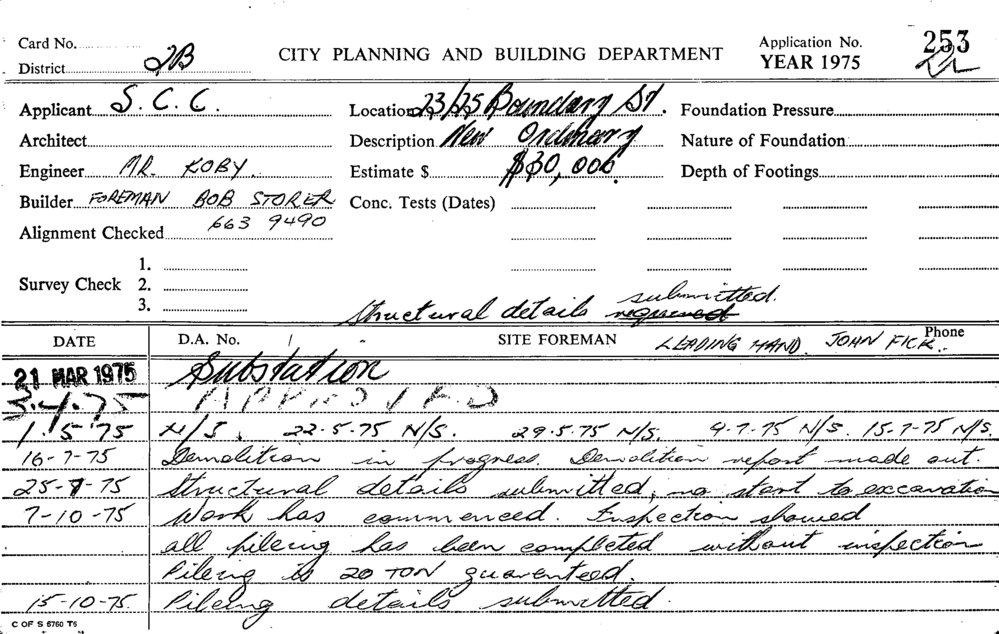 Card No. CITY PLANNING AND BUILDING DEPARTMENT Application No. 253
District 2B YEAR 1975
Applicant S.C.C. Location 23/25 Boundary St. Foundation Pressure
Architect Description New Ordinary Nature of Foundation
Engineer MR. KOBY. Estimate $ $30,000. Depth of Footings
Builder FOREMAN BOB STORER Conc. Tests (Dates)
663 9490
Alignment Checked
1.
Survey Check 2.
3.
Structural details required submitted.
DATE D.A. No. / SITE FOREMAN LEADING HAND. JOHN FICK. Phone
21 MAR 1975 Substation
3.4.75 APPROVED
1.5.75 N/S. 22.5.75 N/S. 29.5.75 N/S. 4.7.75 N/S. 15-7-75 N/S.
16-7-75 Demolition in progress. Demolition report made out.
25-9-75 Structural details submitted, no start to excavation
7-10-75 Work has commenced. Inspection showed
all pileing has been completed without inspection
Pileing is 20 TON guaranteed.
15-10-75. Pileing details submitted.
C OF S 6760 T6